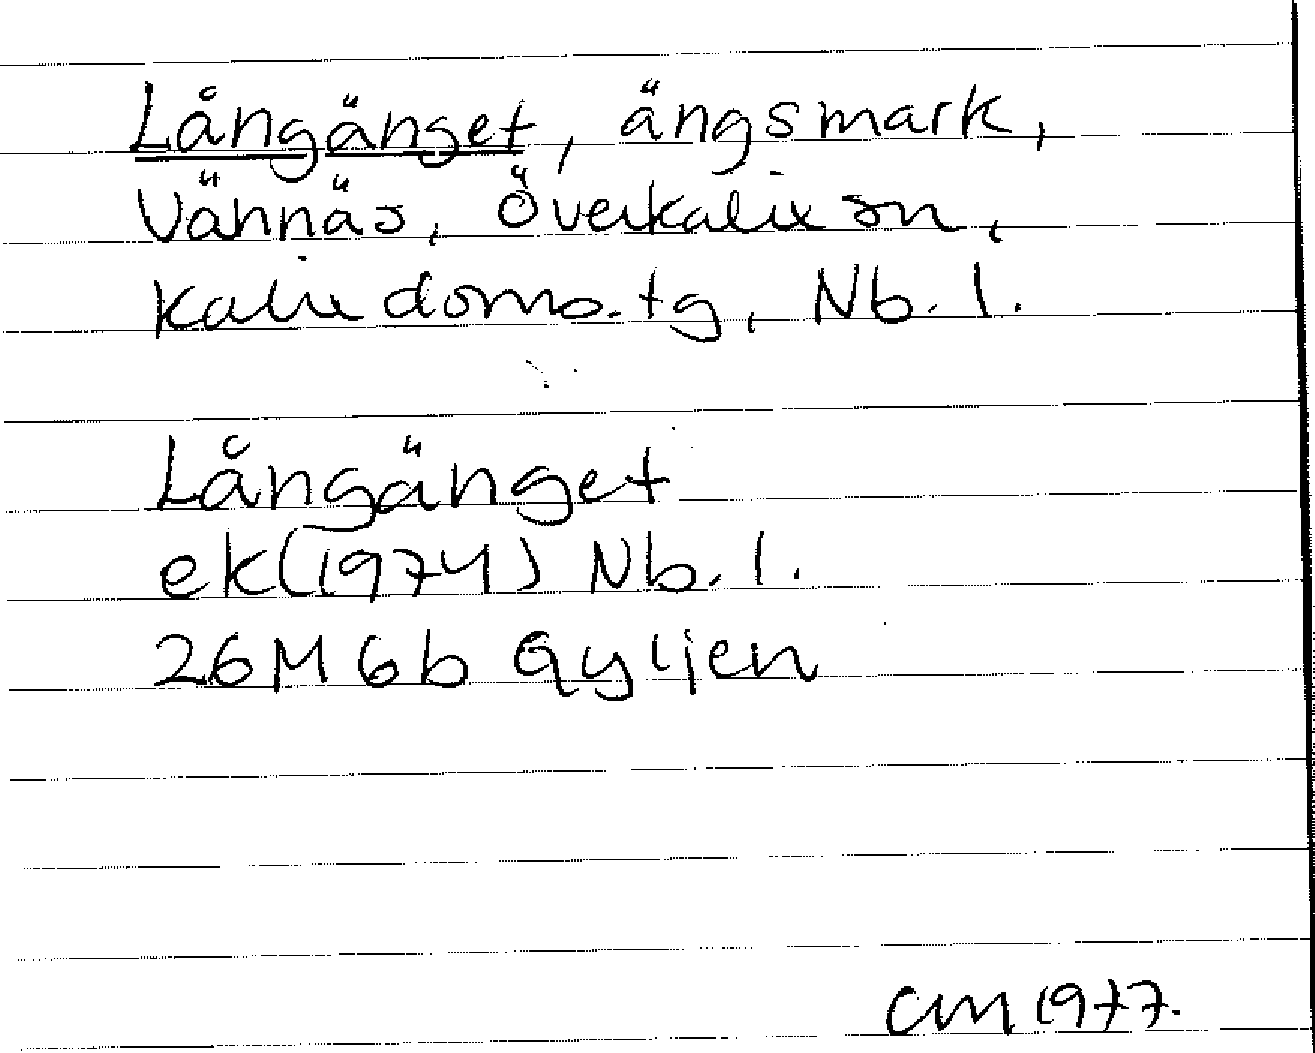 Långänget, ängsmark,
Vännäs, Överkalix sn,
Kalix doms. tg, Nb. l.
Långänget
ek (1974) Nb. l.
26M 6b Gyljen
CM 1977.